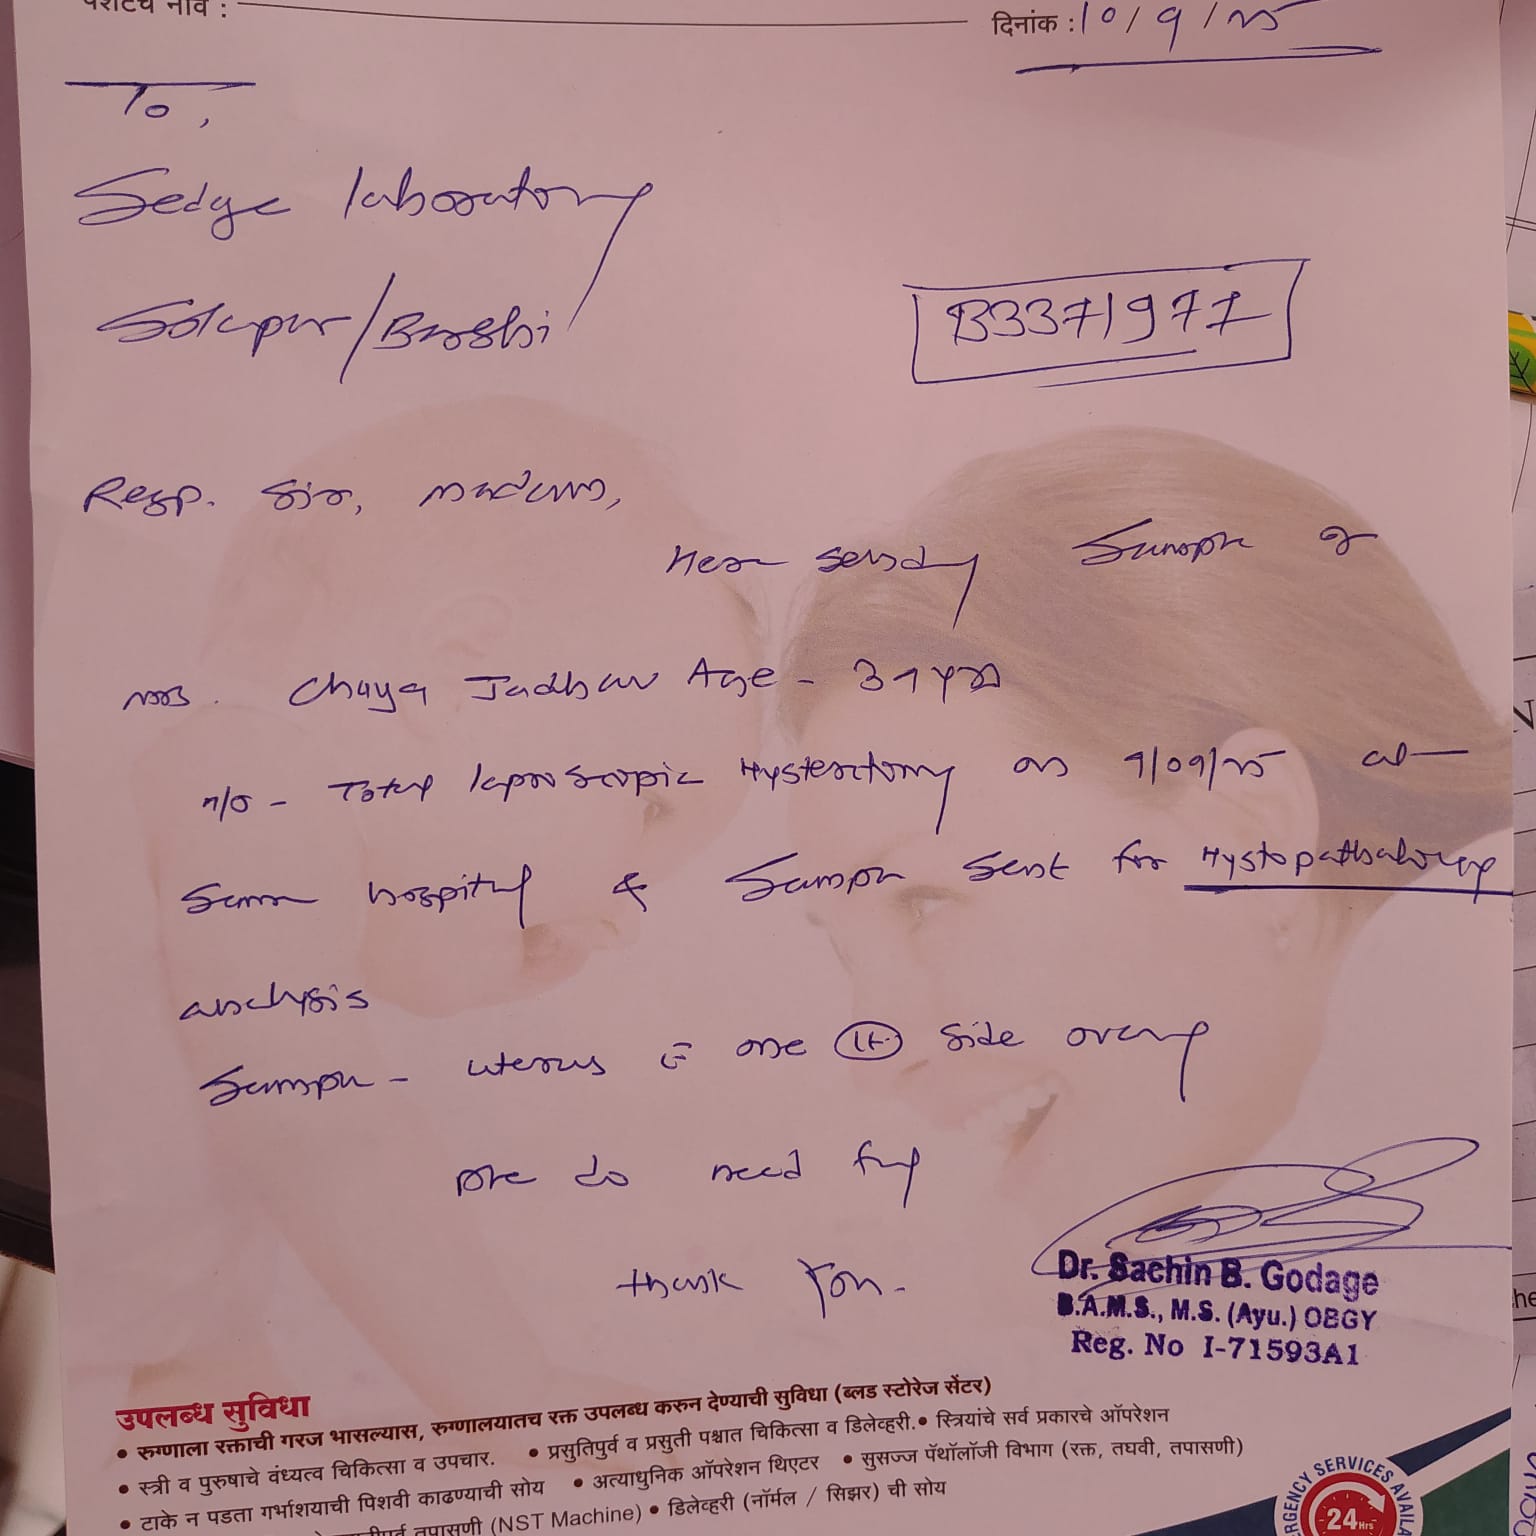 पेशंटचे नाव :
दिनांक : 10/9/25
To,
Sedge laboratory
Solapur/Barshi
B3371977
Resp. Sir, madam,
Here sendy Sample of
mrs. Chaya Jadhav Age - 37 yrs
H/O - Total laproscopic Hysterctomy on 9/09/25 at
same hospital & Sample sent for Hystopathalogy
analysis
Sample - uterus c̄ one Lt. side ovary
plz do need ful
thank You.
Dr. Sachin B. Godage
B.A.M.S., M.S. (Ayu.) OBGY
Reg. No I-71593A1
उपलब्ध सुविधा
• रुग्णाला रक्ताची गरज भासल्यास, रुग्णालयातच रक्त उपलब्ध करुन देण्याची सुविधा (ब्लड स्टोरेज सेंटर)
• स्त्री व पुरुषाचे वंध्यत्व चिकित्सा व उपचार. • प्रसुतिपुर्व व प्रसुती पश्चात चिकित्सा व डिलेव्हरी. • स्त्रियांचे सर्व प्रकारचे ऑपरेशन
• टाके न पडता गर्भाशयाची पिशवी काढण्याची सोय • अत्याधुनिक ऑपरेशन थिएटर • सुसज्ज पॅथॉलॉजी विभाग (रक्त, लघवी, तपासणी)
तपासणी (NST Machine) • डिलेव्हरी (नॉर्मल / सिझर) ची सोय
SERVICES
24 Hrs